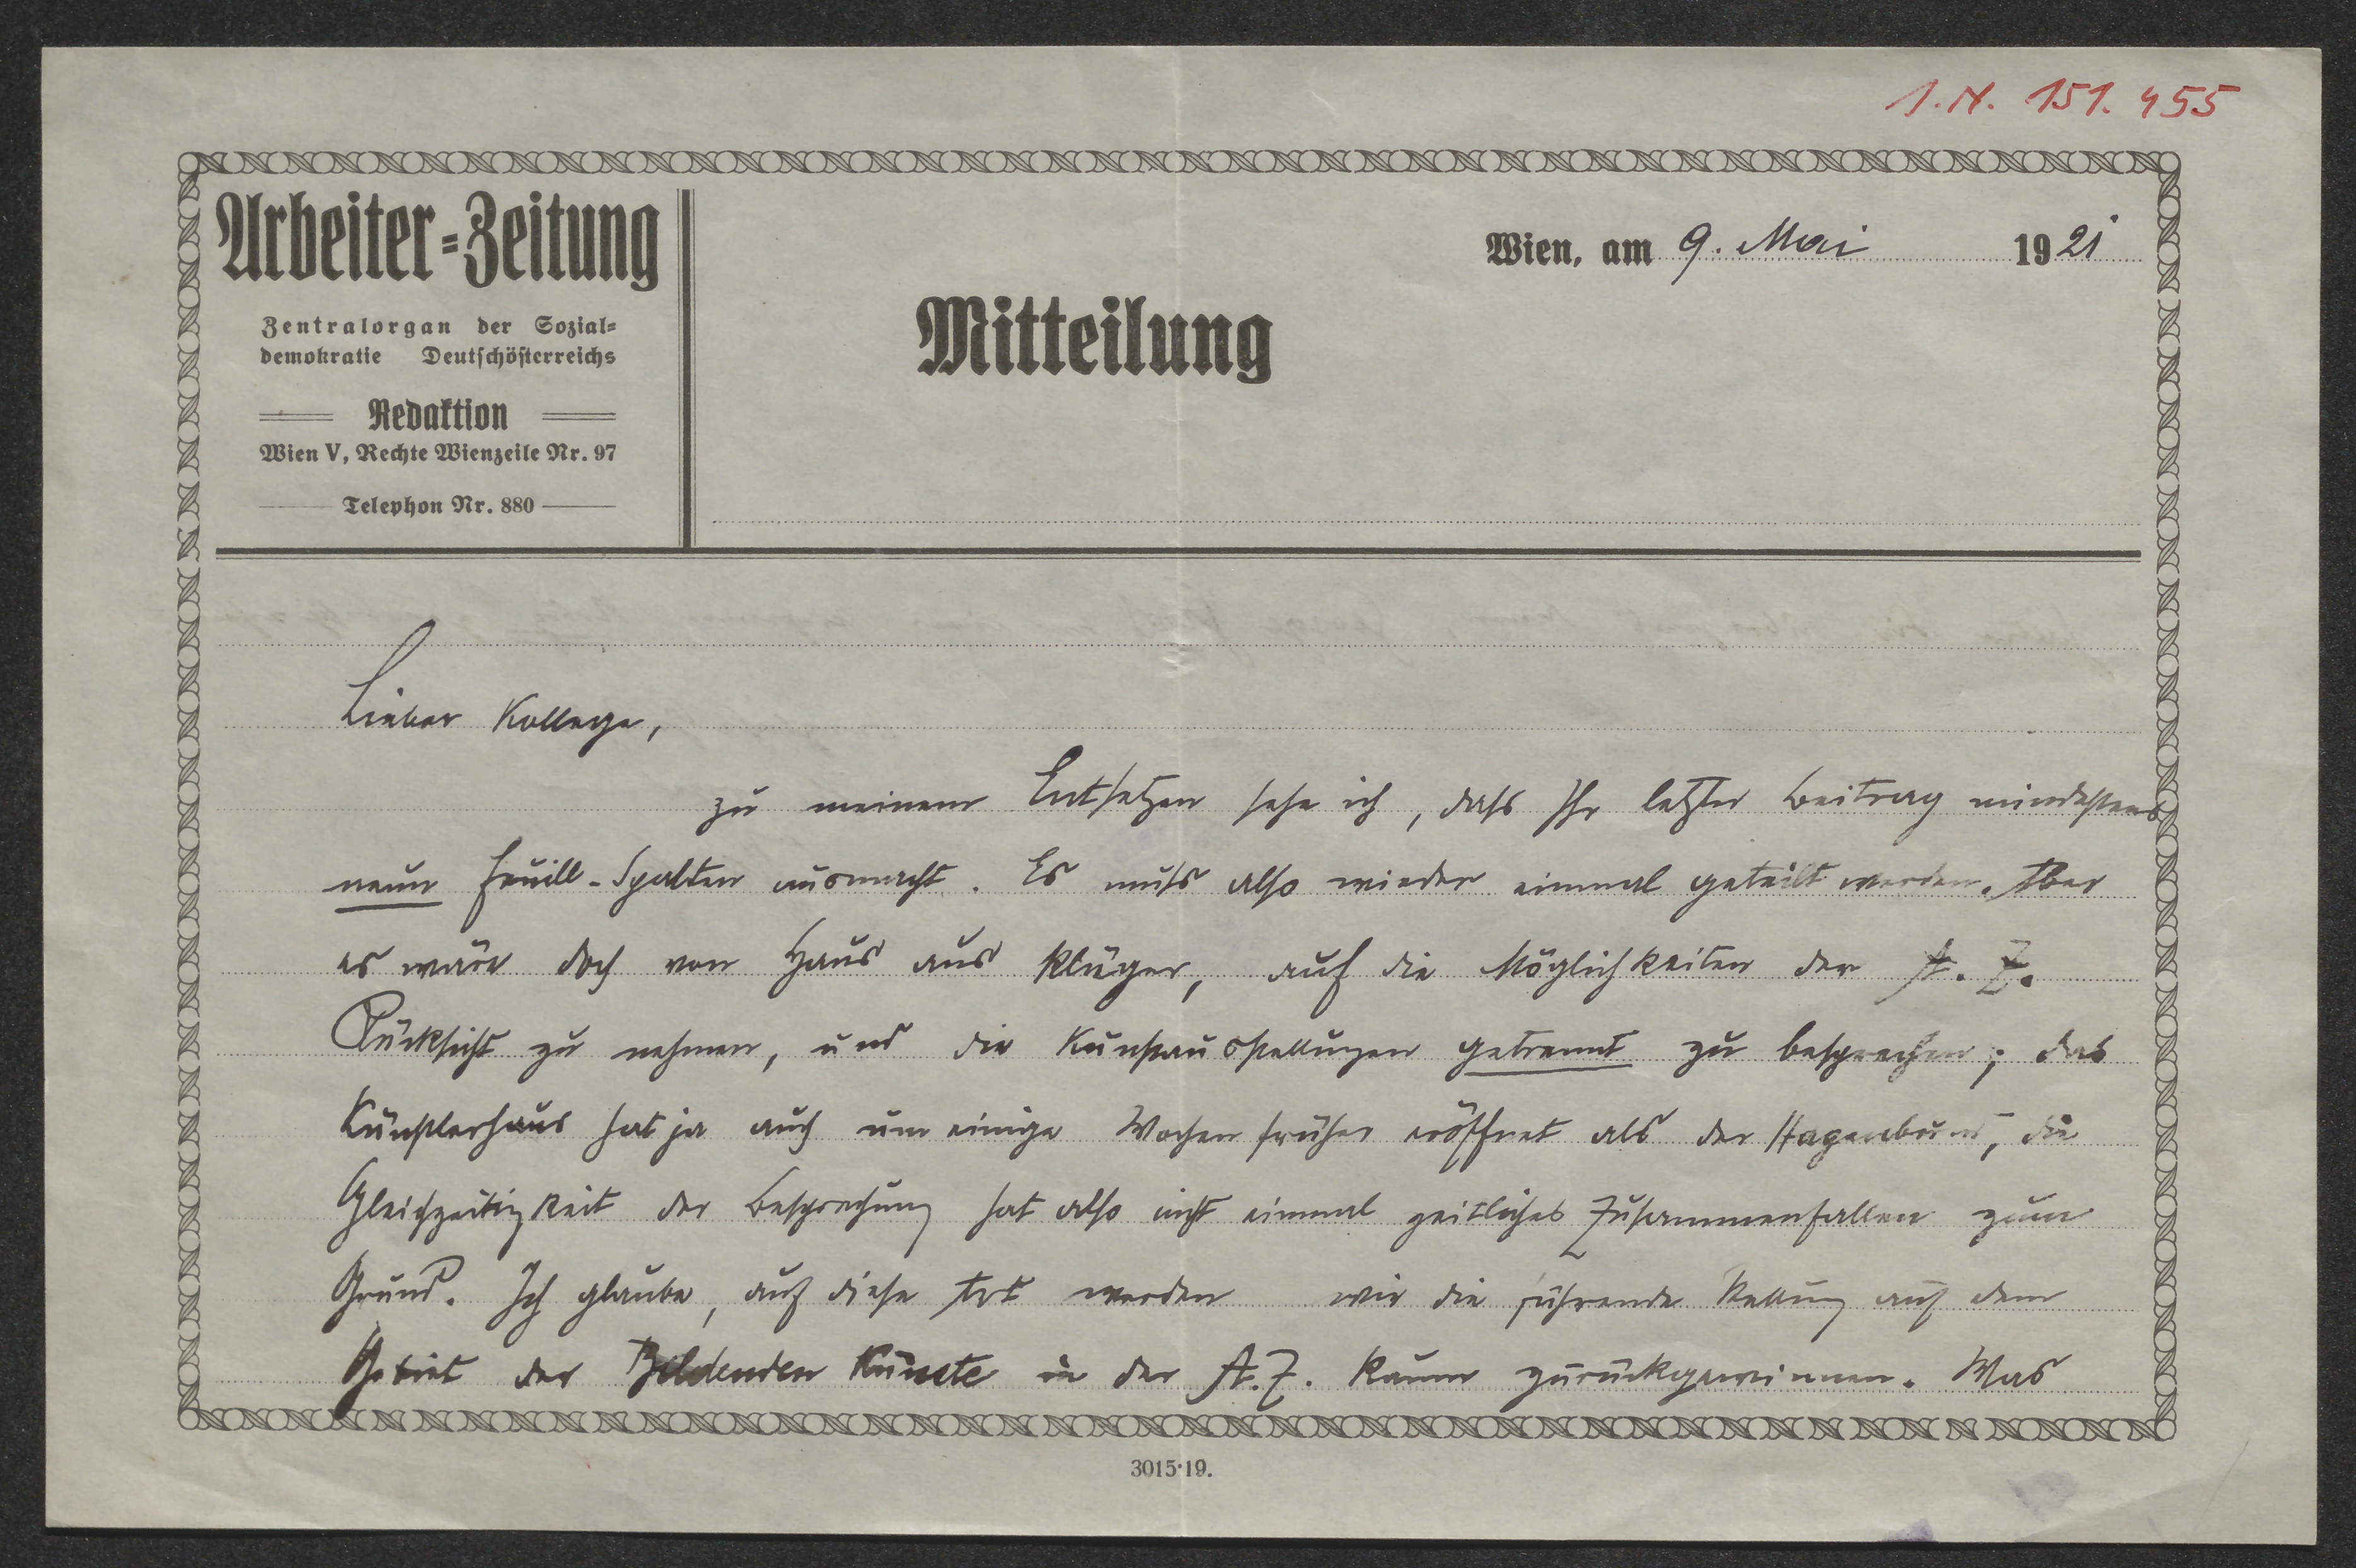 I.N. 151.455
Arbeiter=Zeitung
Zentralorgan der Sozial=
demokratie Deutschösterreichs
Redaktion
Wien V, Rechte Wienzeile Nr. 97
Telephon Nr. 880
Mitteilung
Wien, am 9. Mai 1921
Lieber Kollege,
zu meinem Entsetzen sehe ich, dass Ihr letzter Beitrag mindestens
neun Feuill-Spalten ausmacht. Es muss also wieder einmal geteilt werden. Aber
es wäre doch von Haus aus klüger, auf die Möglichkeiten der A. Z.
Rücksicht zu nehmen, und die Kunstausstellungen getrennt zu besprechen; das
Künstlerhaus hat ja auch um einige Wochen früher eröffnet als der Hagenbund, die
Gleichzeitigkeit der Besprechung hat also nicht einmal zeitliches Zusammenfallen zum
Grund. Ich glaube, auf diese Art werden wir die führende Stellung auf dem
Gebiet der Bildenden Künste in der A.Z. kaum zurückgewinnen. Was
3015·19.